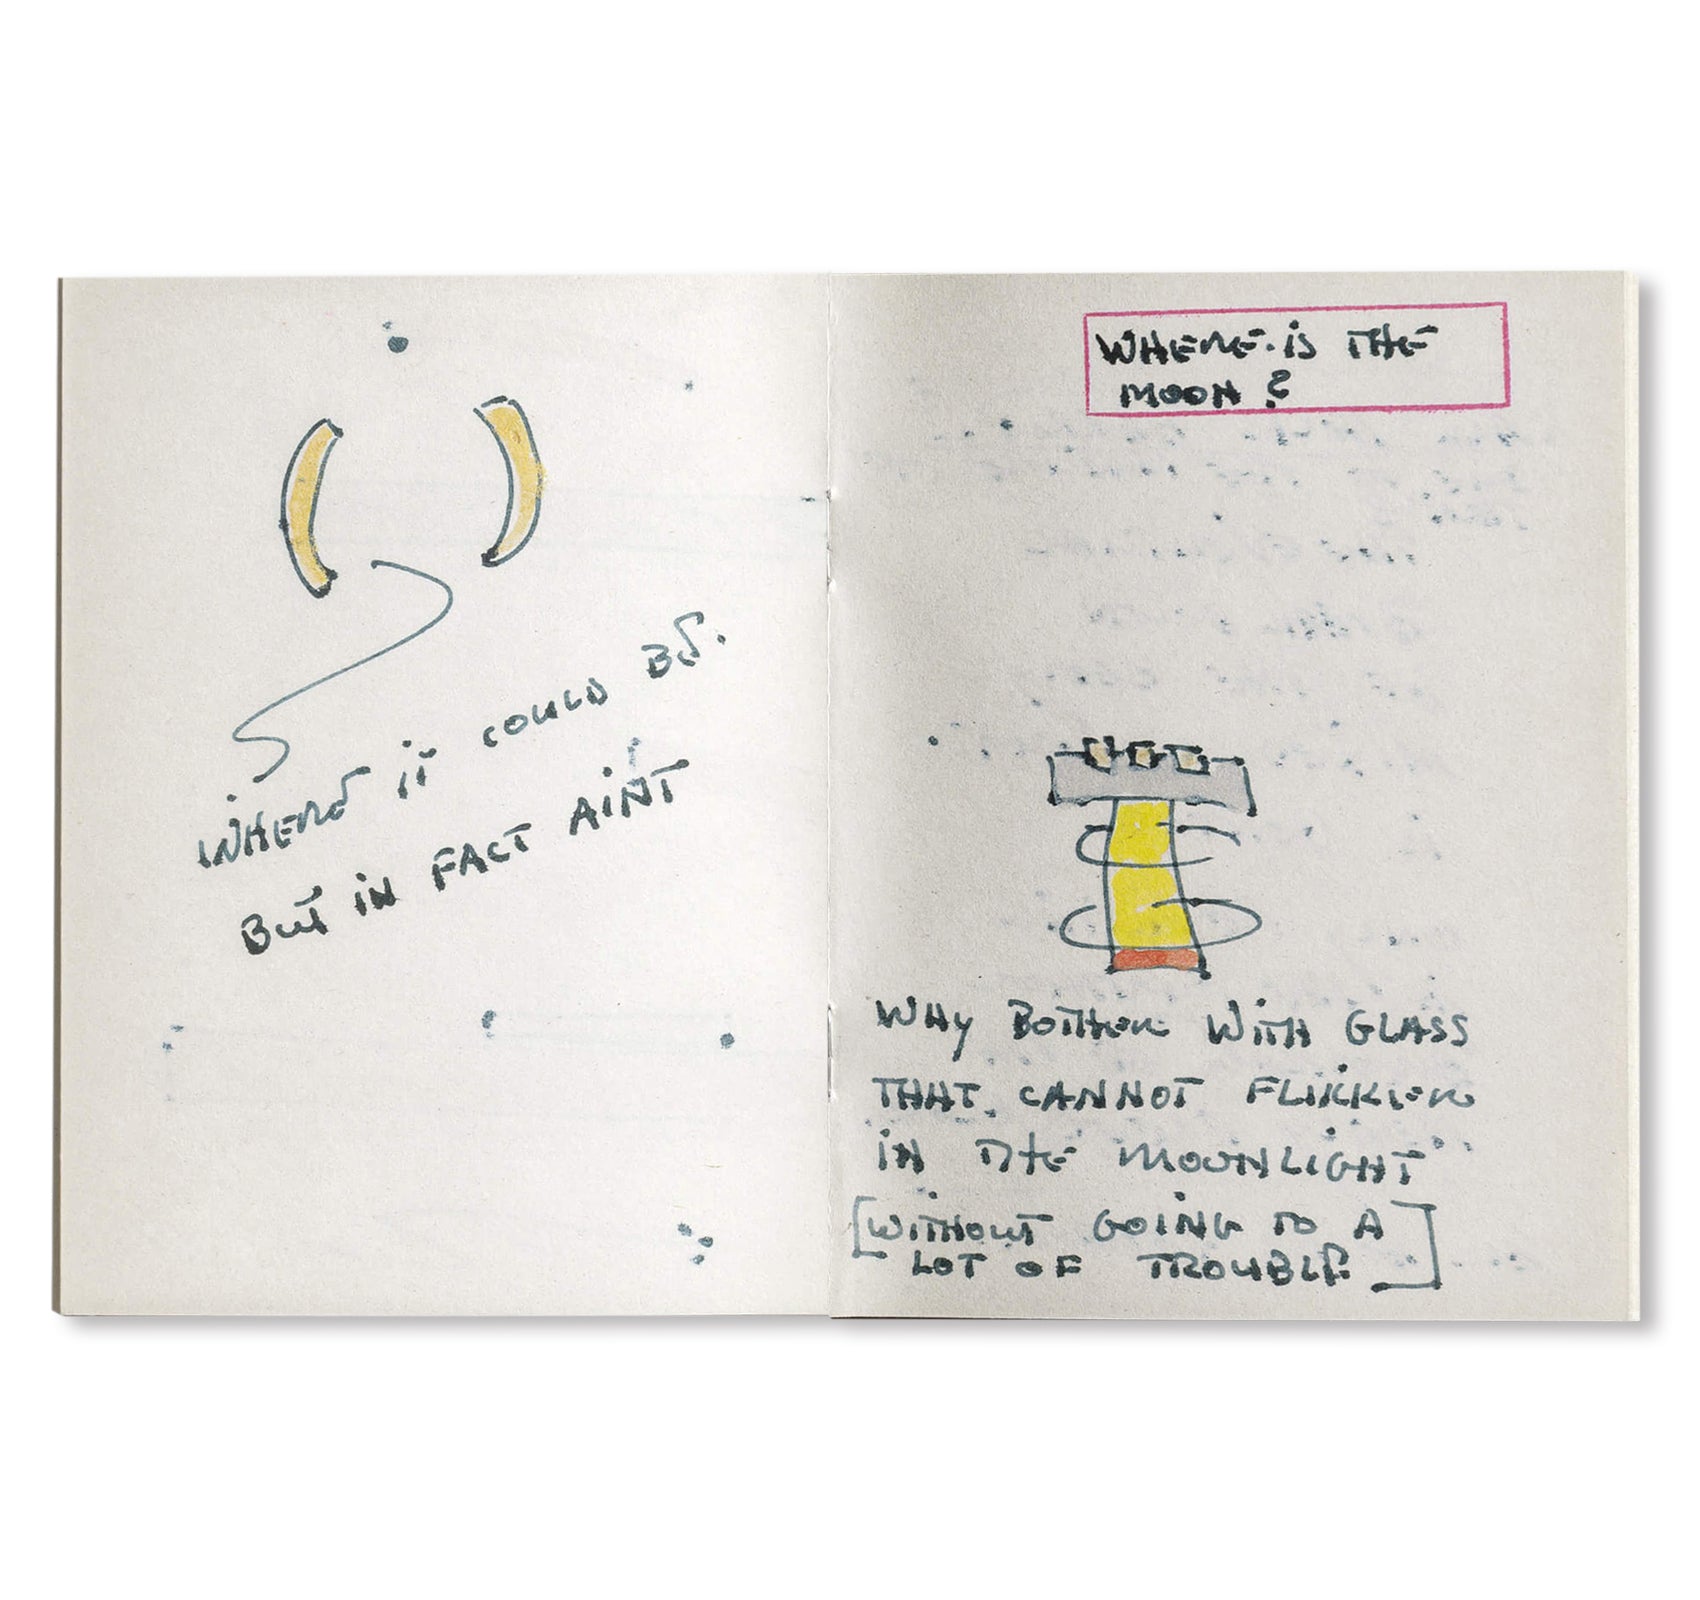 WHERE IT COULD BE.
BUT IN FACT AINT
WHERE IS THE
MOON ?
WHY BOTHER WITH GLASS
THAT CANNOT FLIKKER
IN THE MOONLIGHT
[WITHOUT GOING TO A
LOT OF TROUBLE.]